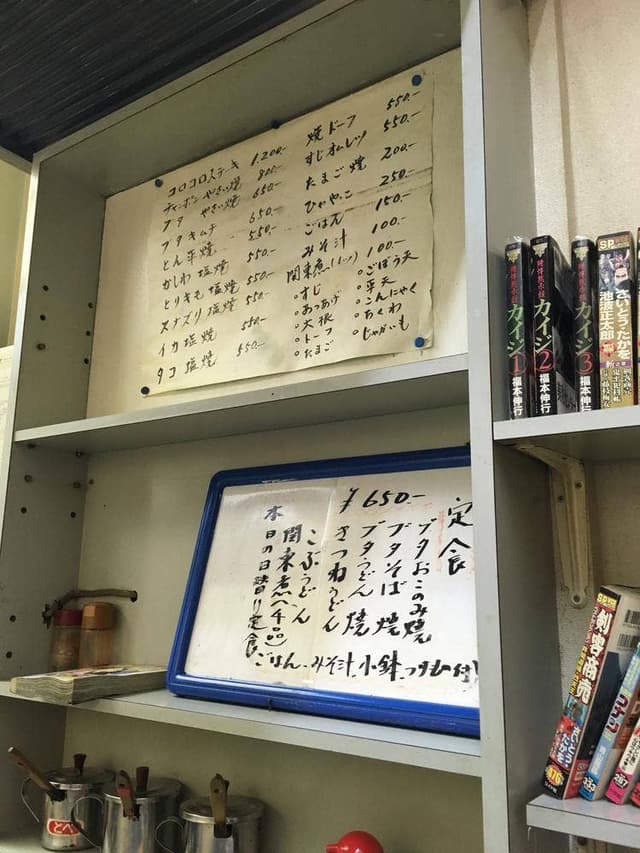 コロコロステーキ 1.200.-
チャンポン やさい焼 800.-
ブタ やさい焼 650.-
ブタキムチ 650.-
とん平焼 550.-
かしわ塩焼 550.-
とりきも塩焼 550.-
スナズリ塩焼 550.-
イカ塩焼 550.-
タコ塩焼 550.-
焼ドーフ 550.-
すじオムレツ 550.-
たまご焼 200.-
ひややっこ 250.-
ごはん 150.-
みそ汁 100.-
関東煮(1ツ) 100.-
○すじ ○ごぼう天
○あつあげ ○平天
○大根 ○こんにゃく
○トーフ ○ちくわ
○たまご ○じゃがいも
定食
¥650.-
ブタおこのみ焼
ブタそば焼
ブタうどん焼
きつねうどん
こぶうどん
関東煮(4品)
本日の日替り定食
ごはん、みそ汁、小鉢、つけもの付
賭博黙示録
カイジ1
福本伸行
カイジ2
福本伸行
カイジ3
福本伸行
SP
さいとう・たかを
池波正太郎
SP
剣客商売
さいとう・たかを
476
333
287